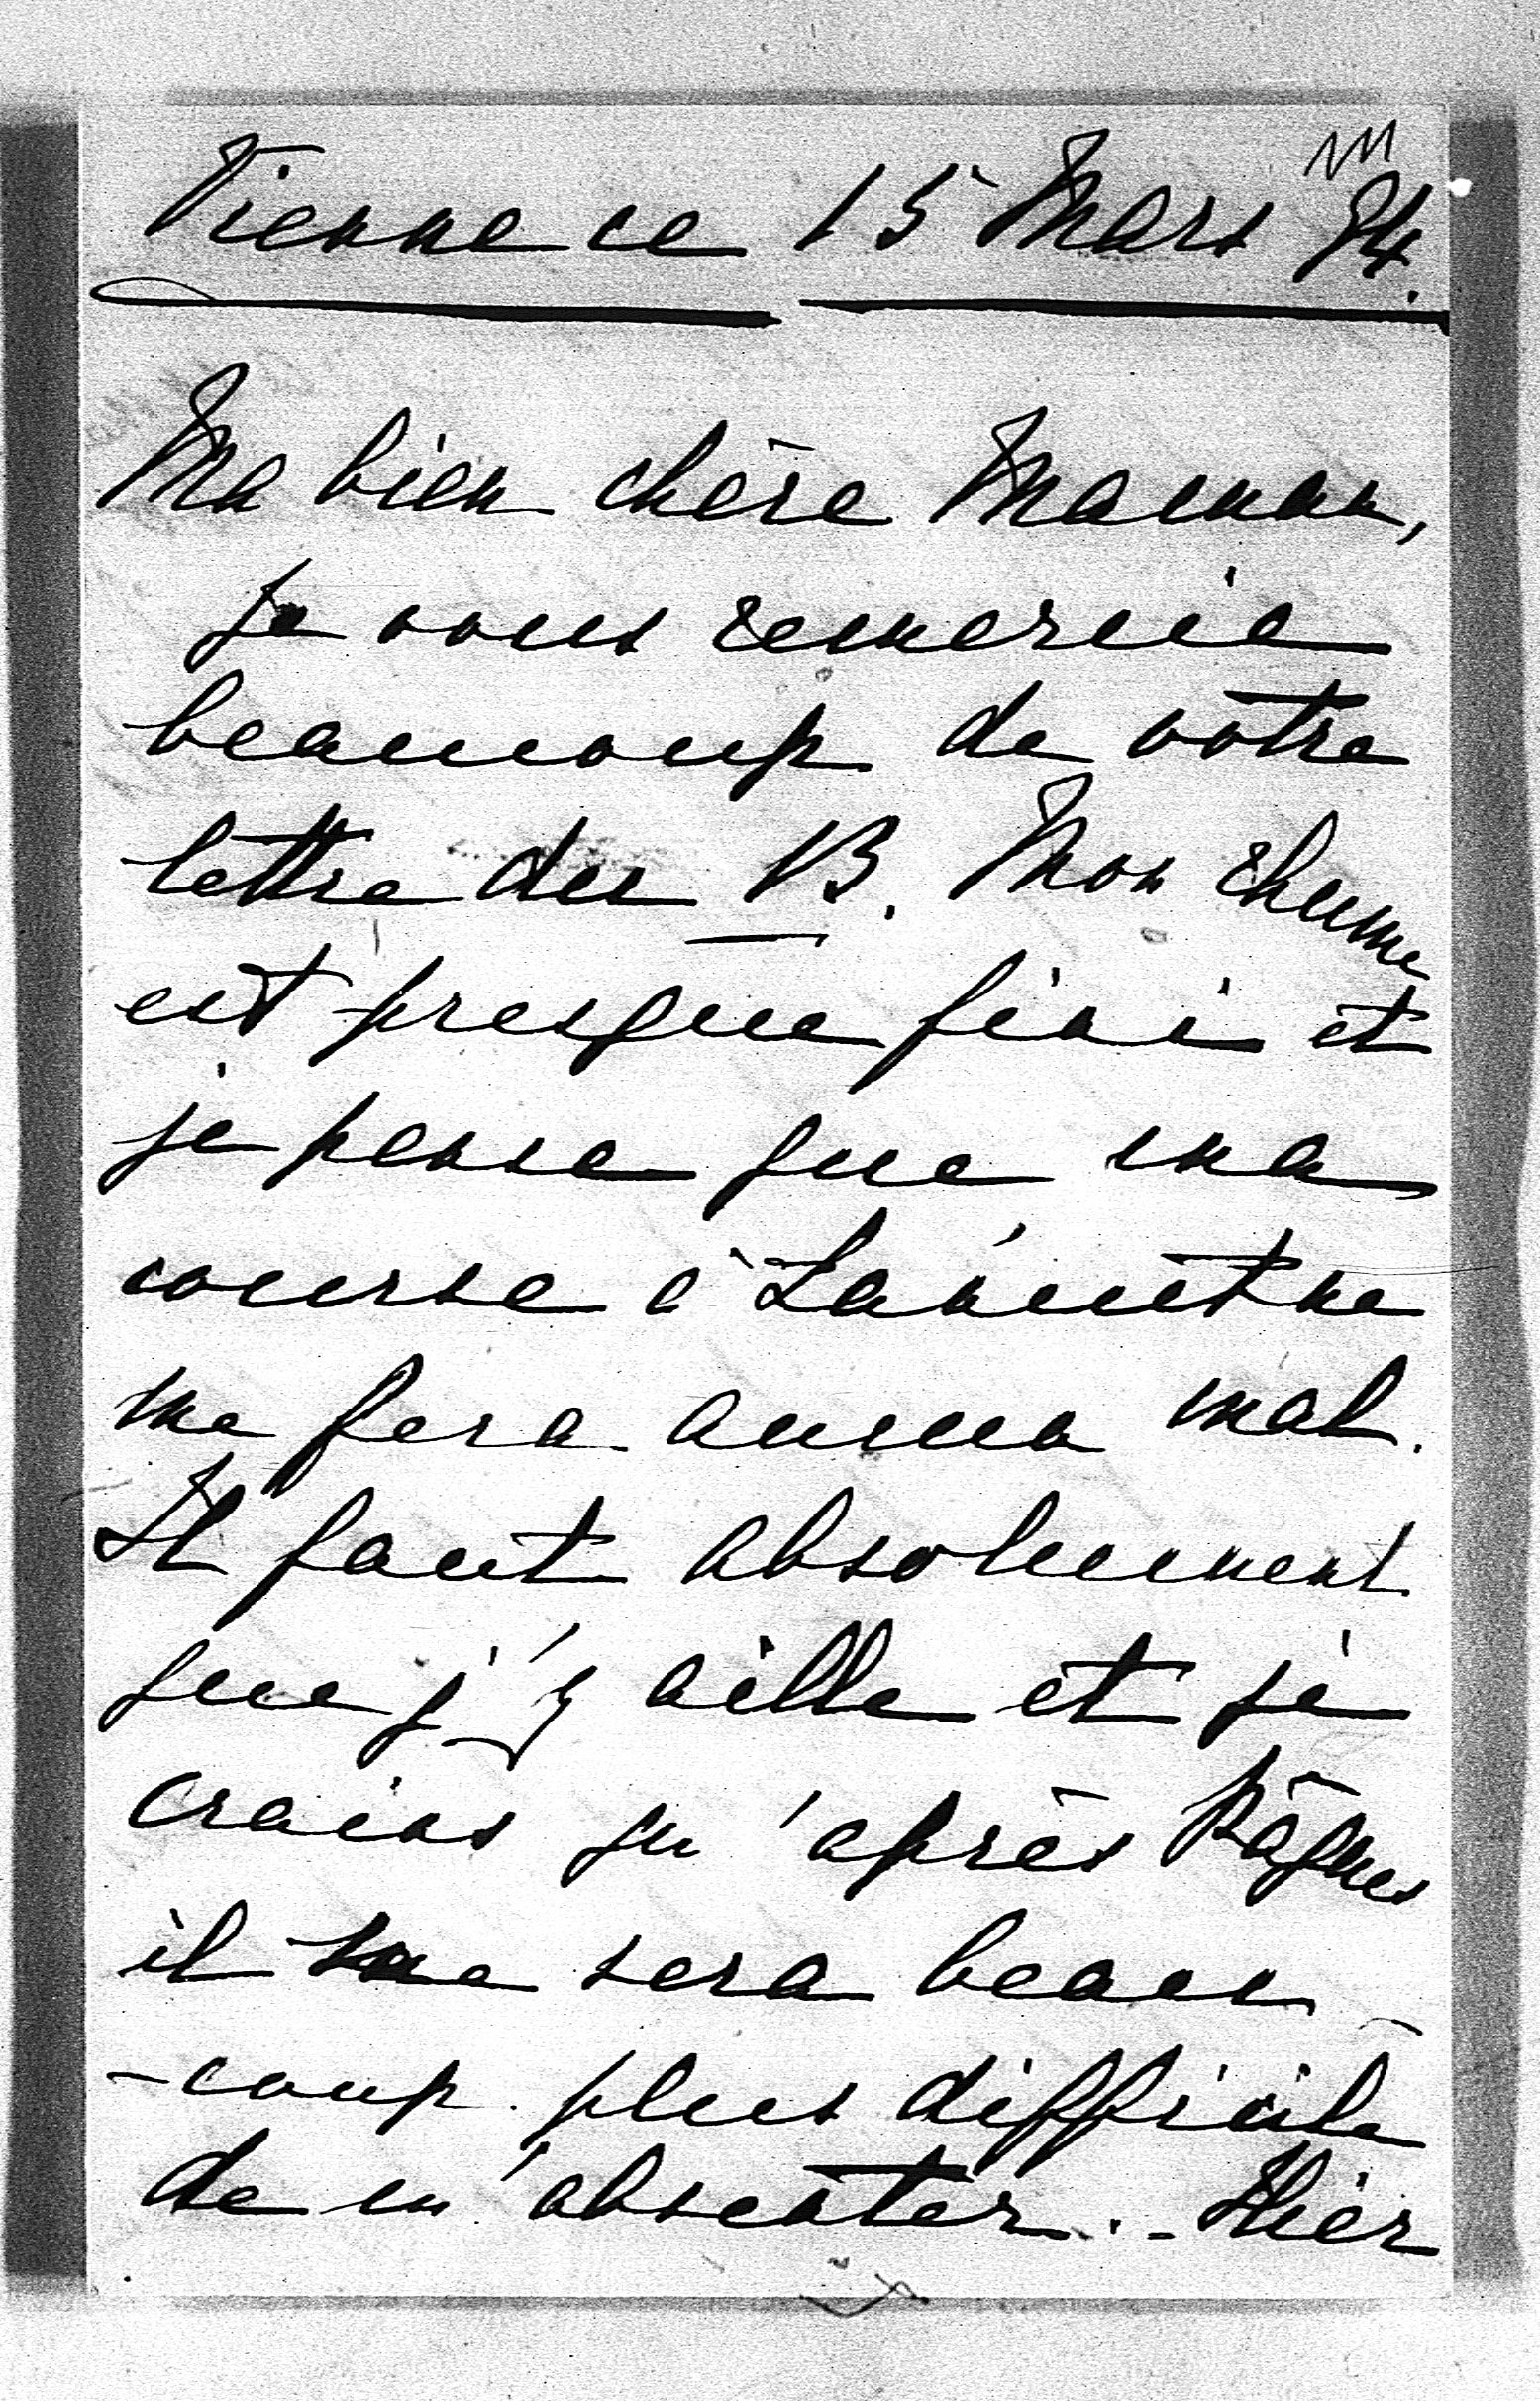 Vienne ce 15 Mars 94.
Ma bien chère Maman,
Je vous remercie
beaucoup de votre
lettre du 13. Mon rhume
est presque fini et
je pense que ma
course à Lancut ne
me fera aucun mal.
Il faut absolument
que j'y aille et je
crains qu'après Pâques
il me sera beau
-coup plus difficile
de m'absenter. - Hier